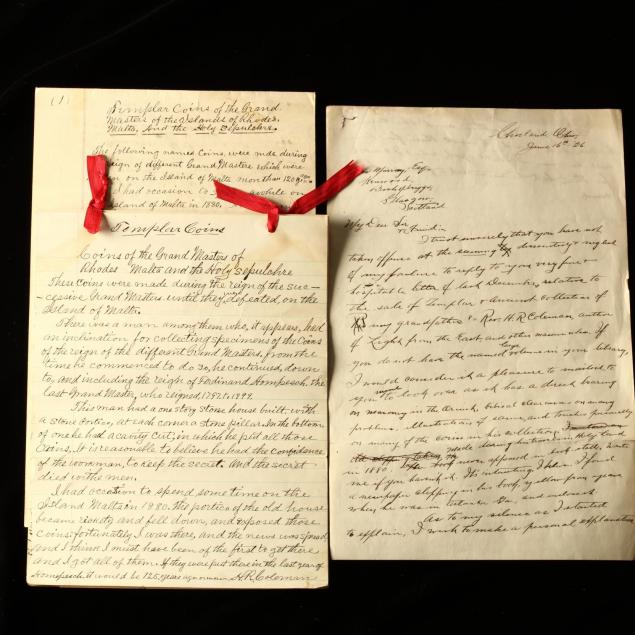 (1)
Templar Coins of the Grand
Masters of the Islands of Rhodes,
Malta, And the Holy Sepulchre.
The following named Coins, were made during
reign of different Grand Masters which were
on the Island of Malta, more than 120
I had occasion to awhile on
Island of Malta in 1880,
Templar Coins
Coins of the Grand Masters of
Rhodes Malta and the Holy Sepulchre
These coins were made during the reign of the suc-
-cessive Grand Masters, until they were defeated, on the
Island of Malta.
There was a man among them who, it appears, had
an inclination for collecting specimens of the Coins
of the reign of the different Grand Masters, from the
time he commenced to do so, he continued, down
to, and including the reign of Ferdinand Hompesch, the
last Grand Master, who reigned, 1797 to 1799.
This man had a one story stone house built, with
a stone Portico, at each corner a stone pillar. In the bottom
of one he had a cavity cut, in which he hid all those
Coins, It is reasonable to believe he had the confidence
of the workman, to keep the secret. And the secret
died with the men.
I had occasion to spend some time on the
Island Malta in 1880. the portico of the old house
became rickety and fell down, and exposed those
Coins, fortunately I was there, and the news was spread,
and I think I must have been of the first to get there
and I got all of them. If they were put there in the last year of
Hompesch it would be 125 years ago or more H.R. Coleman
Cleveland Ohio,
June 16th '26
Murray Esq.
Glasgow,
Scotland
My Dear Sir
& Friend:-
I trust sincerely that you have not
taken offense at the seeming discourtesy & neglect
of my failure to reply to your very fine &
hospitable letter of last December, relative to
the sale of Templar & Ancient Collection of
my grandfather's - Rev. H.R. Coleman, author
of Light from the East and other masonic. If
you do not have the named volume in your library,
I would consider it a pleasure to mailed to
you to look over as it has a direct bearing
on masonry in the orient, biblical clearness on many
problems. Illustrations of same, and touches personally
on many of the coins in his collection,
made during his travels in Holy Land
in 1880. book never appeared in book stalls. Write
me if you have not it. Its interesting I believe. I found
a newspaper clipping in his book, yellow from years
when he was in and enclosed
As to my silence as I started
to explain, I wish to make a personal explanation